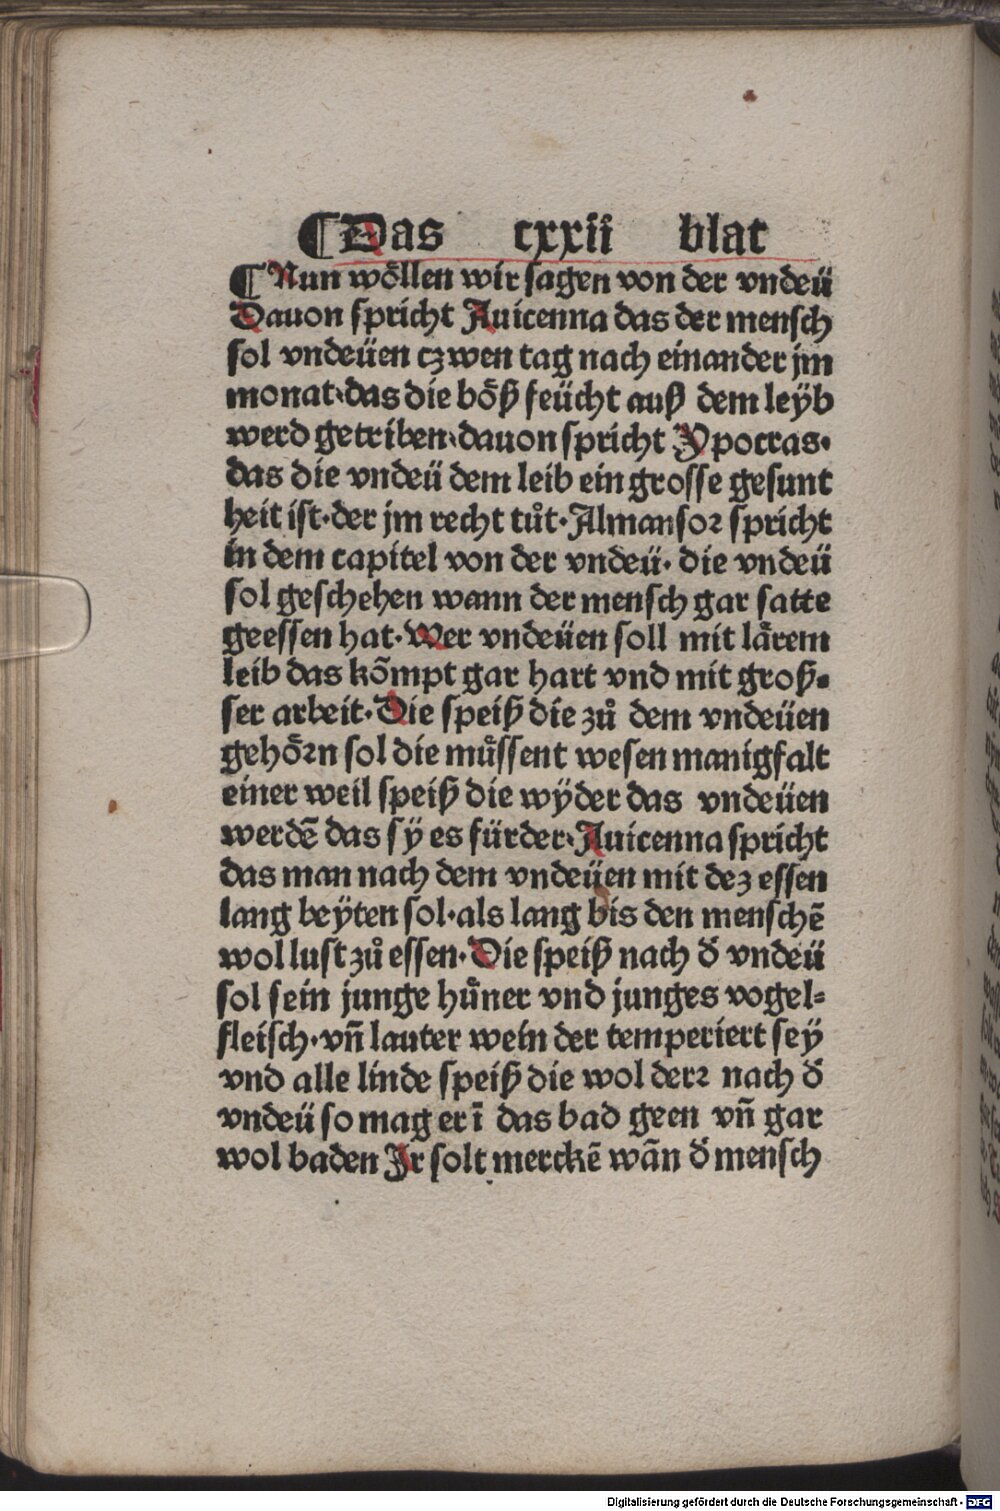 ¶Das cxxii blat
¶Nun woͤllen wir sagen von der vndeü
Dauon spricht Auicenna das der mensch
sol vndeüen czwen tag nach einander jm
monat·das die boͤß feücht auß dem leÿb
werd getriben·dauon spricht Ypocras·
das die vndeü dem leib ein grosse gesunt
heit ist·der jm recht tuͦt·Almansoꝛ spricht
in dem capitel von der vndeü· die vndeü
sol geschehen wann der mensch gar satte
geessen hat·Wer vndeüen soll mit laͤrem
leib das koͤmpt gar hart vnd mit groß⸗
ser arbeit·Die speiß die zuͦ dem vndeüen
gehoͤꝛn sol die muͤssent wesen manigfalt
einer weil speiß die wÿder das vndeüen
werdē das sÿ es fürder·Auicenna spricht
das man nach dem vndeüen mit dez essen
lang beÿten sol·als lang bis den menschē
wol lust zuͦ essen·Die speiß nach d̄ vndeü
sol sein junge huͤner vnd junges vogel⸗
fleisch·vn̄ lauter wein der temperiert seÿ
vnd alle linde speiß die wol derꝛ nach d̄
vndeü so mag er ī das bad geen vn̄ gar
wol baden Jr solt merckē wān d̄ mensch
Digitalisierung gefördert durch die Deutsche Forschungsgemeinschaft - DFG